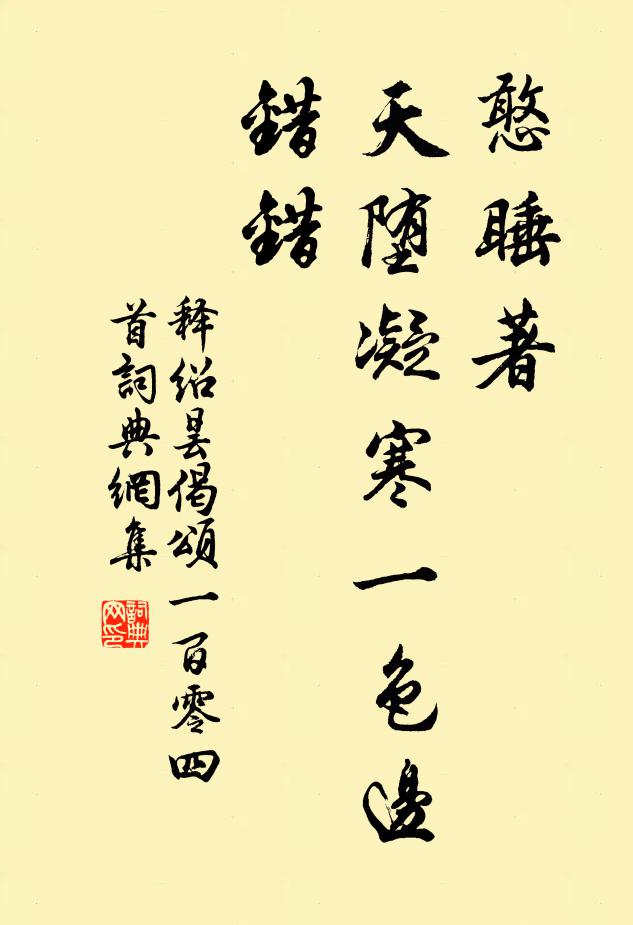 憨睡著
天堕凝寒一色邊
錯錯
释紹曇偈頌一百零四
首詞典網集
詞典网印